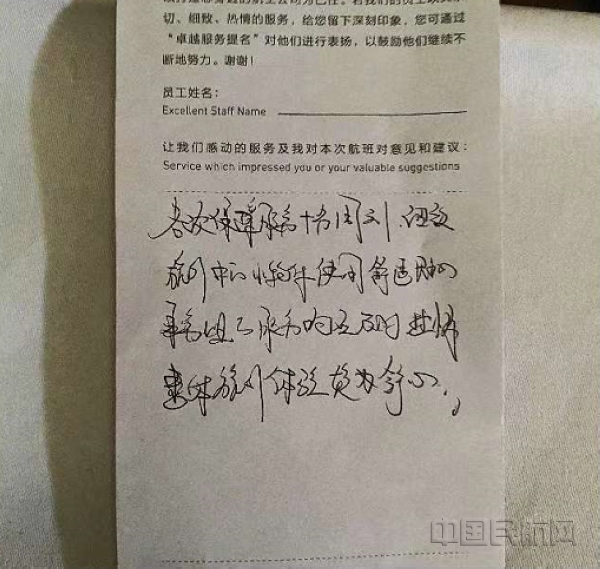 切、细致、热情的服务，给您留下深刻印象，您可通过
“卓越服务提名”对他们进行表扬，以鼓励他们继续不
断地努力。谢谢！
员工姓名：
Excellent Staff Name
让我们感动的服务及我对本次航班对意见和建议：
Service which impressed you or your valuable suggestions
各次保障服务十分周到，细致
旅行中的小物件使用舒适
乘务组的服务响应及时
整体旅行体验 舒心。
中国民航网